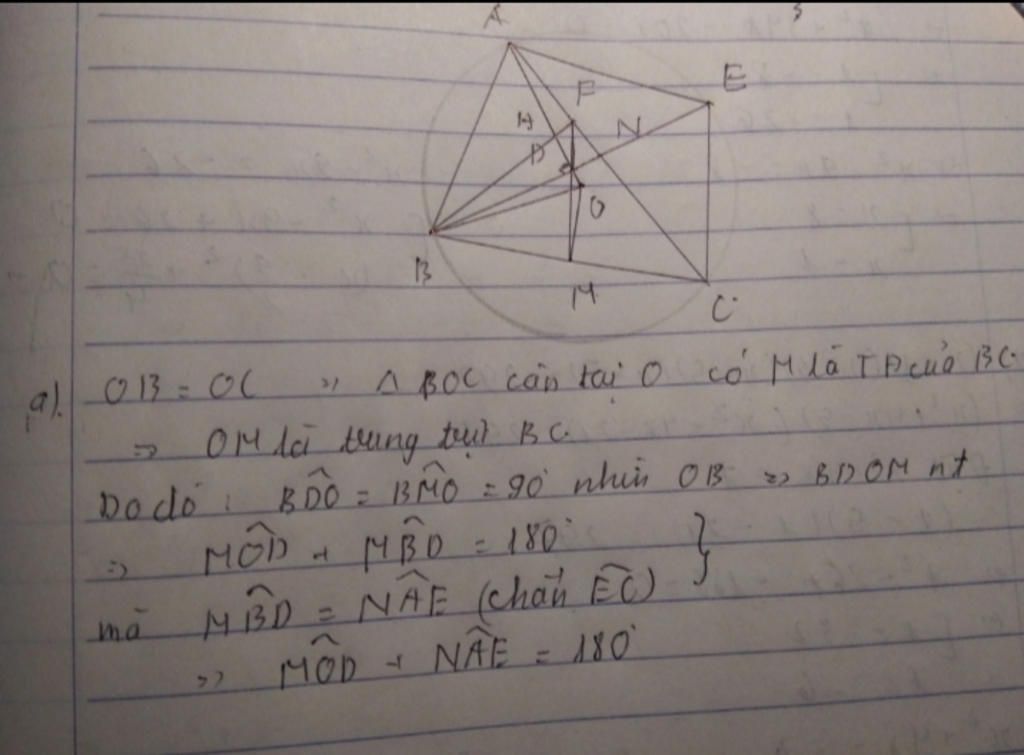 A
E
F
H
N
D
O
B
M
C
a). OB = OC => Δ BOC cân tại O có M là TĐ của BC
=> OM là trung trực BC.
Do đó : BD̂O = BM̂O = 90° nhìn OB => BDOM nt
=> MÔD + MB̂D = 180° }
mà MB̂D = NÂE (chắn EC)
=> MÔD + NÂE = 180°